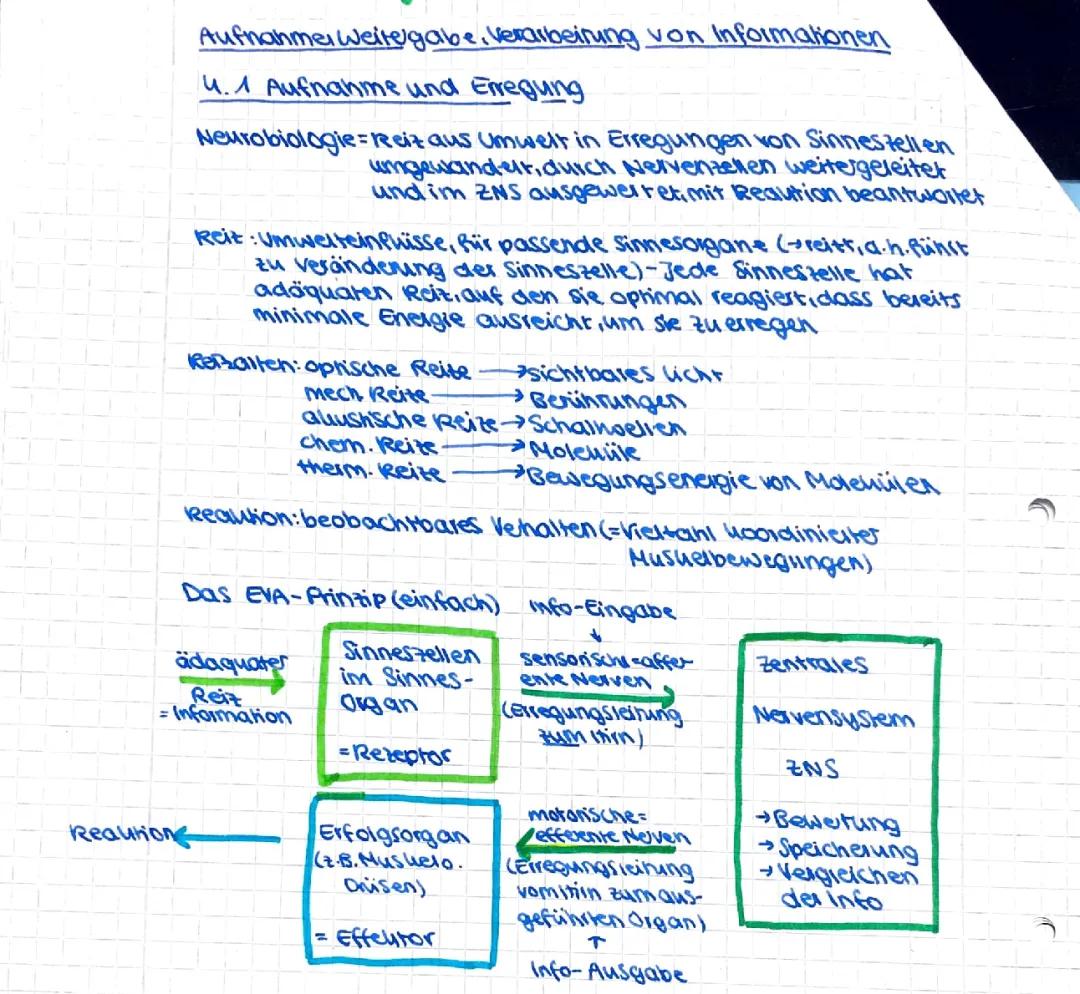 Aufnahme, Weitergabe, Verarbeitung von Informationen
4.1 Aufnahme und Erregung
Neurobiologie = Reiz aus Umwelt in Erregungen von Sinneszellen
umgewandelt, durch Nervenzellen weitergeleitet
und im ZNS ausgewertet, mit Reaktion beantwortet
Reiz: Umwelteinflüsse, für passende Sinnesorgane (→ reizt, d.h. führt
zu Veränderung der Sinneszelle) - Jede Sinneszelle hat
adäquaten Reiz, auf den sie optimal reagiert, dass bereits
minimale Energie ausreicht, um sie zu erregen
Reizarten: optische Reize → sichtbares Licht
mech. Reize → Berührungen
akustische Reize → Schallwellen
chem. Reize → Moleküle
therm. Reize → Bewegungsenergie von Molekülen
Reaktion: beobachtbares Verhalten (= Vielzahl koordinierter
Muskelbewegungen)
Das EVA-Prinzip (einfach)
Info-Eingabe
↓
ädaquater
Reiz
= Information
Sinneszellen
im Sinnes-
organ
= Rezeptor
sensorische = affer
ente Nerven
(Erregungsleitung
zum Hirn)
Zentrales
Nervensystem
ZNS
→ Bewertung
→ Speicherung
→ Vergleichen
der Info
motorische =
efferente Nerven
(Erregungsleitung
vom Hirn zum aus-
geführten Organ)
↑
Info-Ausgabe
Erfolgsorgan
(z.B. Muskel o.
Drüsen)
= Effektor
Reaktion